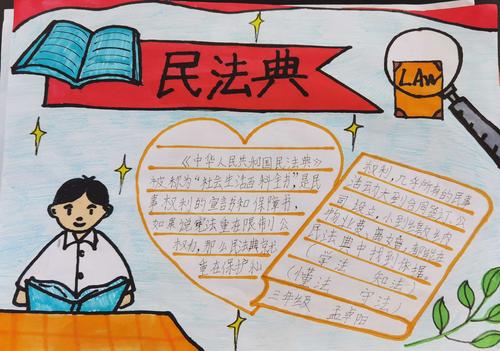 民法典
LAW
《中华人民共和国民法典》
被称为“社会生活百科全书”,是民
事权利的宣言书和保障书,
如果说宪法重在限制公
权力,那么民法典就
重在保护私
权利,几乎所有的民事
活动大到合同签订、公
司设立,小到缴纳
物业费、离婚,都能在
民法典中找到依据。
(学法 知法)
(懂法 守法)
三年级 孟